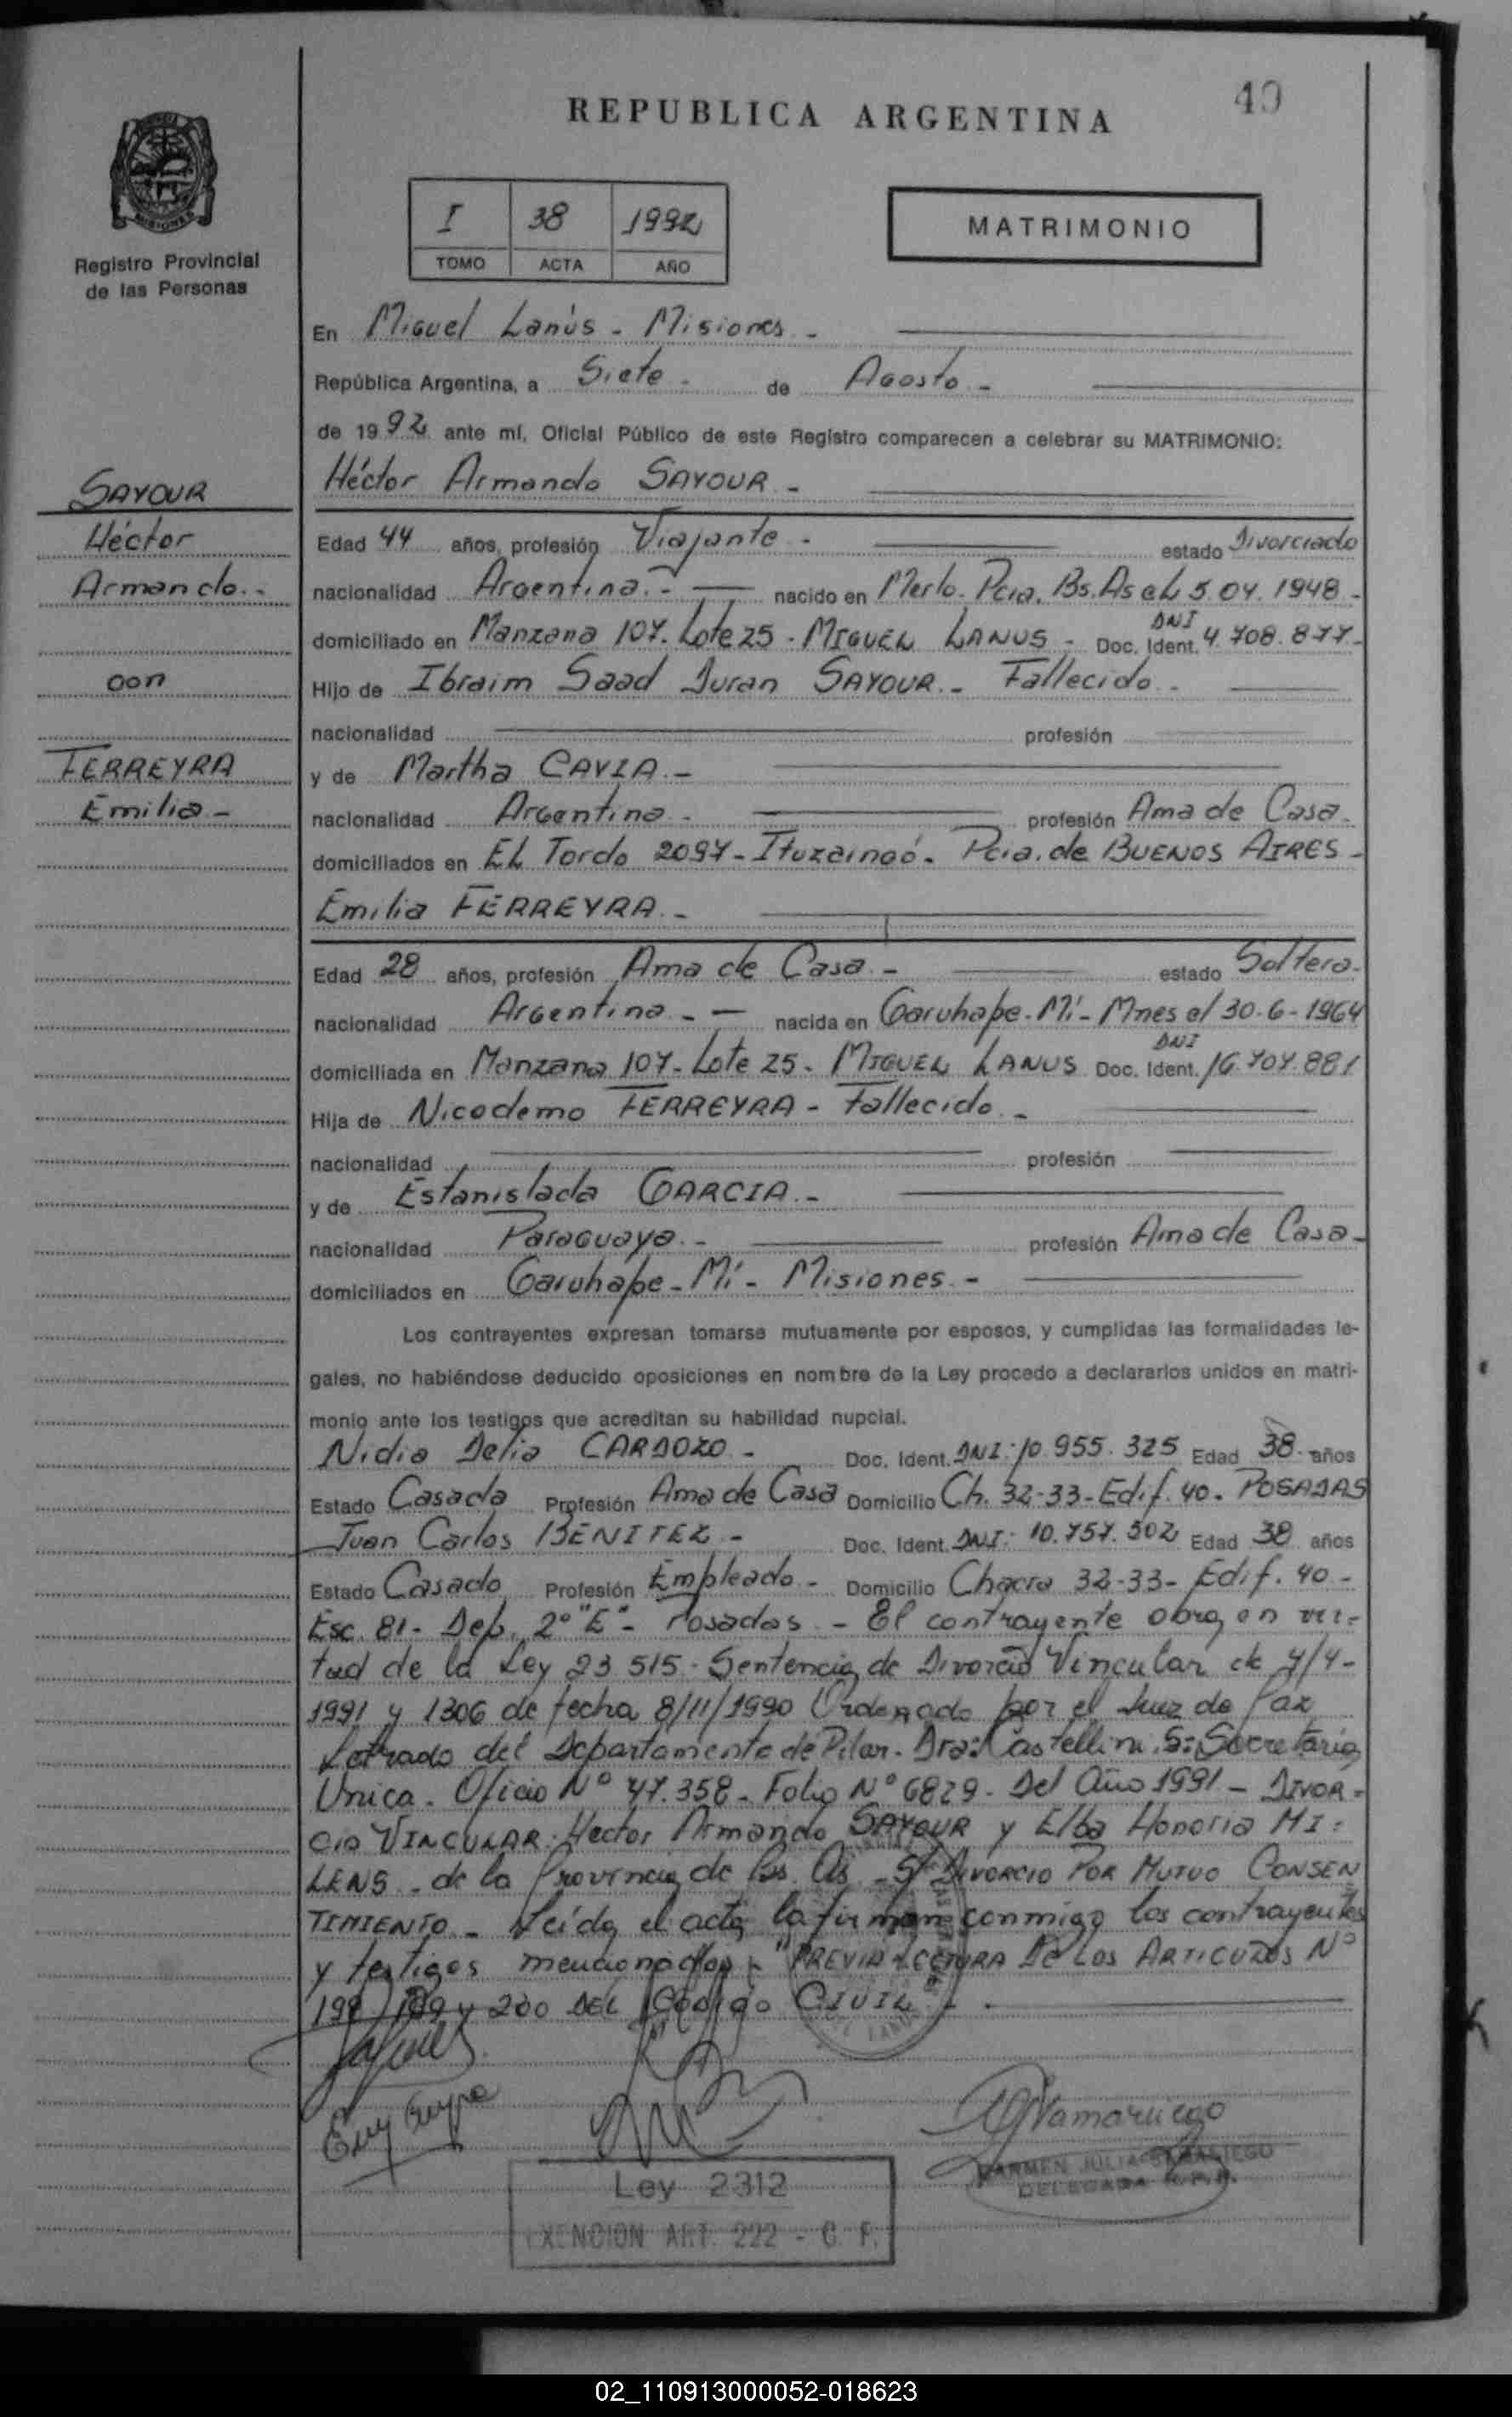 REPUBLICA ARGENTINA
I 38 1992
TOMO ACTA AÑO
MATRIMONIO
Registro Provincial
de las Personas
En Miguel Lanús - Misiones -
República Argentina, a Siete - de Agosto -
de 1992 ante mí, Oficial Público de este Registro comparecen a celebrar su MATRIMONIO:
Héctor Armando SAYOUR -
SAYOUR
Héctor
Armando. -
con
FERREYRA
Emilia -
Edad 44 años, profesión Viajante - estado Divorciado
nacionalidad Argentina. - nacido en Merlo. Pcia. Bs. As el 5. 04. 1948 -
domiciliado en Manzana 107. Lote 25 - MIGUEL LANUS - Doc. Ident. DNI 4.708.877 -
Hijo de Ibraim Saad Duran SAYOUR. - Fallecido. -
nacionalidad profesión
y de Martha CAVIA. -
nacionalidad Argentina - profesión Ama de Casa -
domiciliados en EL Tordo 2097 - Ituzaingó - Pcia. de BUENOS AIRES -
Emilia FERREYRA. -
Edad 28 años, profesión Ama de Casa. - estado Soltera -
nacionalidad Argentina. - nacida en Garuhape - Mí - Mnes el 30 - 6 - 1964
domiciliada en Manzana 107 - Lote 25 - MIGUEL LANUS Doc. Ident. DNI 16.707.881
Hija de Nicodemo FERREYRA - Fallecido. -
nacionalidad profesión
y de Estanislada GARCIA. -
nacionalidad Paraguaya. - profesión Ama de Casa -
domiciliados en Garuhape - Mí - Misiones. -
Los contrayentes expresan tomarse mutuamente por esposos, y cumplidas las formalidades le-
gales, no habiéndose deducido oposiciones en nombre de la Ley procedo a declararlos unidos en matri-
monio ante los testigos que acreditan su habilidad nupcial.
Nidia Delia CARDOZO - Doc. Ident. DNI: 10.955.325 Edad 38 años
Estado Casada Profesión Ama de Casa Domicilio Ch. 32-33 - Edif. 40 - POSADAS
Juan Carlos BENITEZ - Doc. Ident. DNI: 10.757.502 Edad 38 años
Estado Casado Profesión Empleado - Domicilio Chacra 32-33 - Edif. 40 -
Esc. 81 - Dep. 2° "E" - Posadas - El contrayente obra en vir-
tud de la Ley 23.515 - Sentencia de Divorcio Vincular de 4/4 -
1991 y 1306 de fecha 8/11/1990 Ordenado por el Juez de Paz
Letrado del Departamento de Pilar. Dra: Castellini, S: Secretaria
Unica - Oficio N° 47.358 - Folio N° 6829 - Del Año 1991 - DIVOR-
CIO VINCULAR: Hector Armando SAYOUR y Elba Honoria MI-
LENS - de la Provincia de Bs. As - S/ DIVORCIO POR MUTUO CONSEN
TIMIENTO - Leída el acta la firman conmigo los contrayentes
y testigos mencionados - "PREVIA LECTURA DE LOS ARTICULOS N°
198, 199 y 200 DEL Código CIVIL -
CARMEN JULIA
DELEGADA R.P.P.
Ley 2312
EXENCION ART. 222 - C. F.
02_110913000052-018623